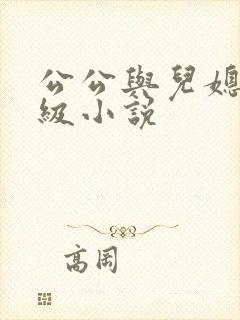 公公與兒媳
級小説
高岡